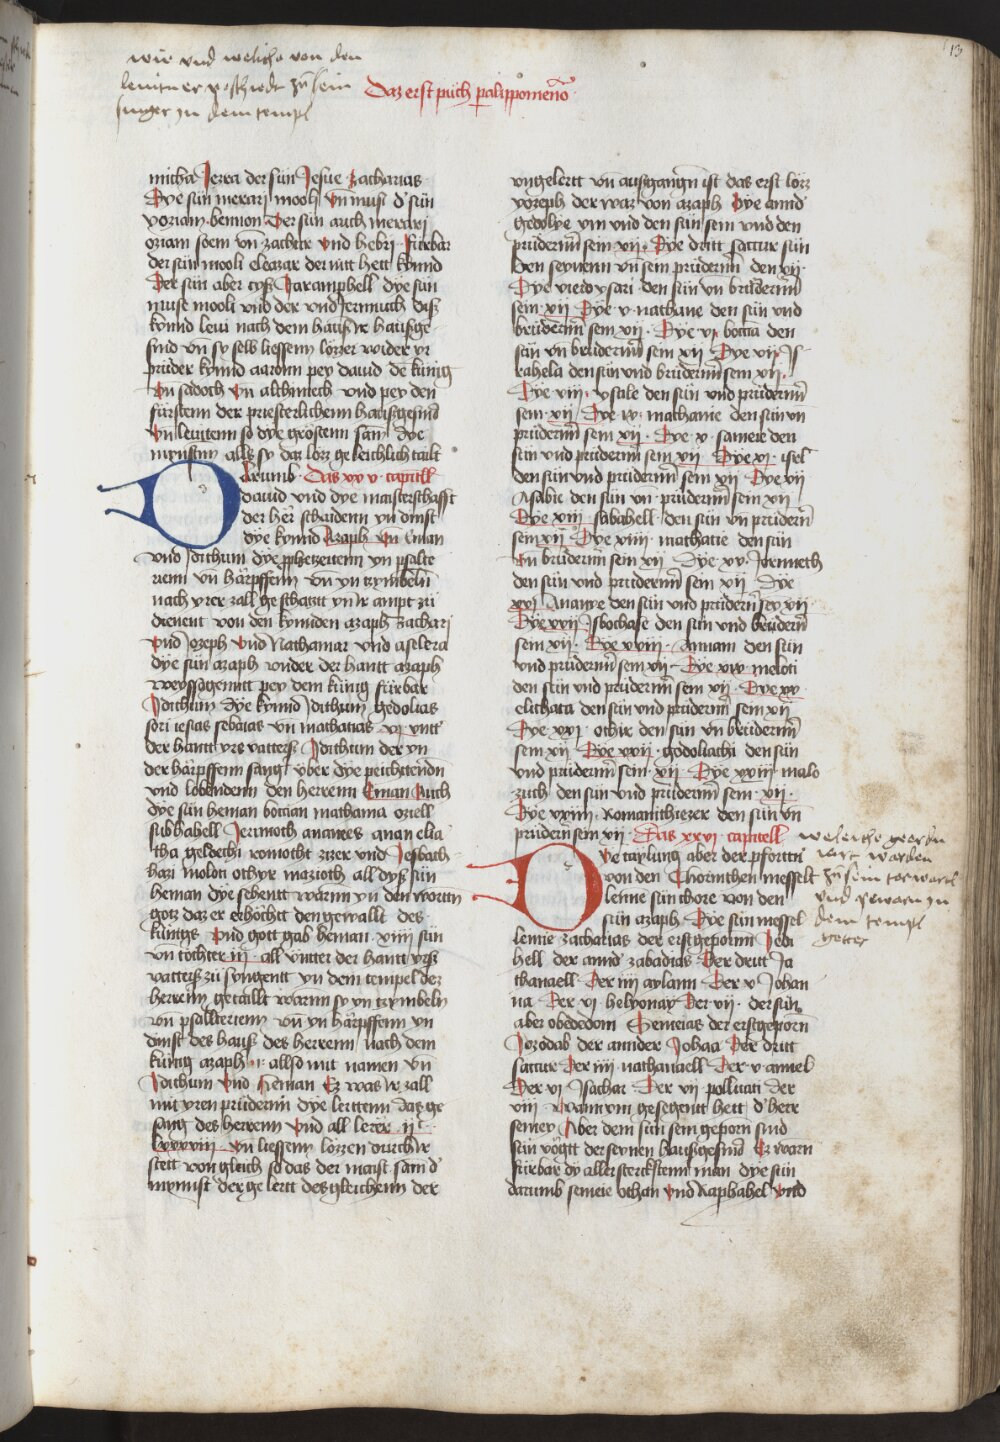 13
wie und weliche von den
leuiten er peschiede zu sein
singer in dem tempel
Daz erst puch paralippomenō
micha Jezra der sün Jesue zacharias
Dye sün merari mooli vn̄ musi d' sün
voziam bennon Der sün auch merari
oziam soem vn̄ zachur vnd hebri fürbar
der sün mooli eleazar der nitt hett kynnd
Der sün aber cyss Jarampbell dye sün
muse mooli vnd der vnd Jermuth daß
kynnd leui nach dem hauß ir haußge
sind vn̄ sy selb liessenn lözzer wider yr
prüder kynnd aaronn pey dauid dē künig
vn̄ sadoch vn̄ alchimech vnd pey den
fürstenn der priesterlichenn haußgesind
vn̄ leuitenn so dye grostenn sam dye
mynstnn alls sy daz lozz geleichlich tailt
Darumb Das xxv capitell
dauid vnd dye maisterschafft
der her schaidenn yn dinst
dye kynnd Azaph vn̄ eman
vnd Jdithum dye prophetzeitenn yn psalte
rienn vn̄ härpffenn vn̄ yn tzymbelnn
nach yrer zall geschatzt yn ir ampt zü
dienent von den kynnden azaph zachari
vnd Jozeph vnd Nathamar vnd aselera
dye sün azaph vnder der hantt azaph
weyssagenntt pey dem künig fürbar
Jdithum dye kynnd Jdithum gedolias
sori iesias sebaias vn̄ mathatias vj vntt'
der hantt yrs vatterß Jdithum der yn
der härpffenn sang vber dye peichttendn
vnd lobendenn den herrenn Eman Auch
dye sün heman boccian mathama oziell
subbahell Jerimoth ananies anan elia
tha geldethi romotht zizer vnd Jesbath
hazi moloti othyr mazioth all dyß sün
heman dye sehentt warnn yn den worttn
gotz daz er erhöchtt den gewallt des
künigs Vnd gott gab heman xiiii sün
vn̄ töchter iij all vntter der hantt yrß
vatterß zü syngentt yn dem tempel dez
herrenn getaillt warnn sy yn tzymbeln
vn̄ psallterienn vn̄ yn härpffenn yn
dinst des hauß des herrenn nach dem
künig azaph allso mit namen vn̄
Jdithum vnd Heman Ez was ir zall
mit yren prüdernn dye lerttenn daz ge
sang des herrenn vnd all lerer ijc
lxxxviii vn̄ liessenn lözzen durch ir
stett von gleich so das der maist sam d'
mynnst der gelertt des gleichenn der
vngelertt vn̄ ausgangn ist das erst lözz
yozeph der waz von azaph Dye annd'
gedolye ym vnd den sün sein vnd den
prüdernn sein xij Dye dritt zattur sün
den seynenn vn̄ sein prüdernn den xij
Dye vierd ysari den sün vn̄ brüdernn
sein xij Dye v nathanie den sün vnd
brüdernn sein xij Dye vj boccia den
sün vn̄ brüdernn sein xij Dye vij Js
rahela den sün vnd brüdernn sein xij
Dye viij ysaie den sün vnd prüdernn
sein xij Dye ix mathanie den sün vn̄
prüdernn sein xij Dye x sameie den
sün vnd prüdernn sein xij Dye xj isel
den sün vnd prüdernn sein xij Dye xij
Asabie den sün vn̄ prüdernn sein xij
Dye xiij subahell den sün vn̄ prüdern
sein xij Dye xiiij mathatie den sün
vn̄ brüdernn sein xij Dye xv Jerimeth
den sün vnd prüdernn sein xij Dye
xvj Ananye den sün vnd prüdern sey xij
Dye xvij Jsbochase den sün vnd brüdern
sein xij Dye xviij Annam den sün
vnd prüdernn sein xij Dye xix meloti
den sün vnd prüdernn sein xij Dye xx
elithata den sün vnd prüdernn sein xij
Dye xxj othir den sün vn̄ brüdernn
sein xij Dye xxij godoliathi den sün
vnd prüdernn sein xij Dye xxiij malo
zuth den sün vnd prüdernn sein xij
Dye xxiiij Romamthiezer den sün vn̄
prüdern sein xij Das xxvj capitell
Dye taylung aber der pforttn
von den Chorinthen messelt
lemie sün chore von den
sün azaph Dye sün messel
lemie zacharias der erstgeporn Jedi
hell der annd' zabadias Der dritt Ja
thanaell Der iiij aylam Der v Johan
na Der vj helyonay Der vij der sün
aber obededom Semeias der erstgeporn
Jozodab der annder Johaa Der dritt
sattur Der iiij nathanaell Der v amiel
Der vj Jsachar Der vij pollitati der
viij wann ym gesegentt hett d' herr
semey Aber dem sün sein geporn sind
sün vögtt der seynen haußgesind Ez warn
fürbar dy allersterckstenn man dye sün
darumb semeie othan vnd Raphahel vnd
weleiche georden
wrt warden
zu sein torwartl
vnd gewarn in
dem tempel
gottes